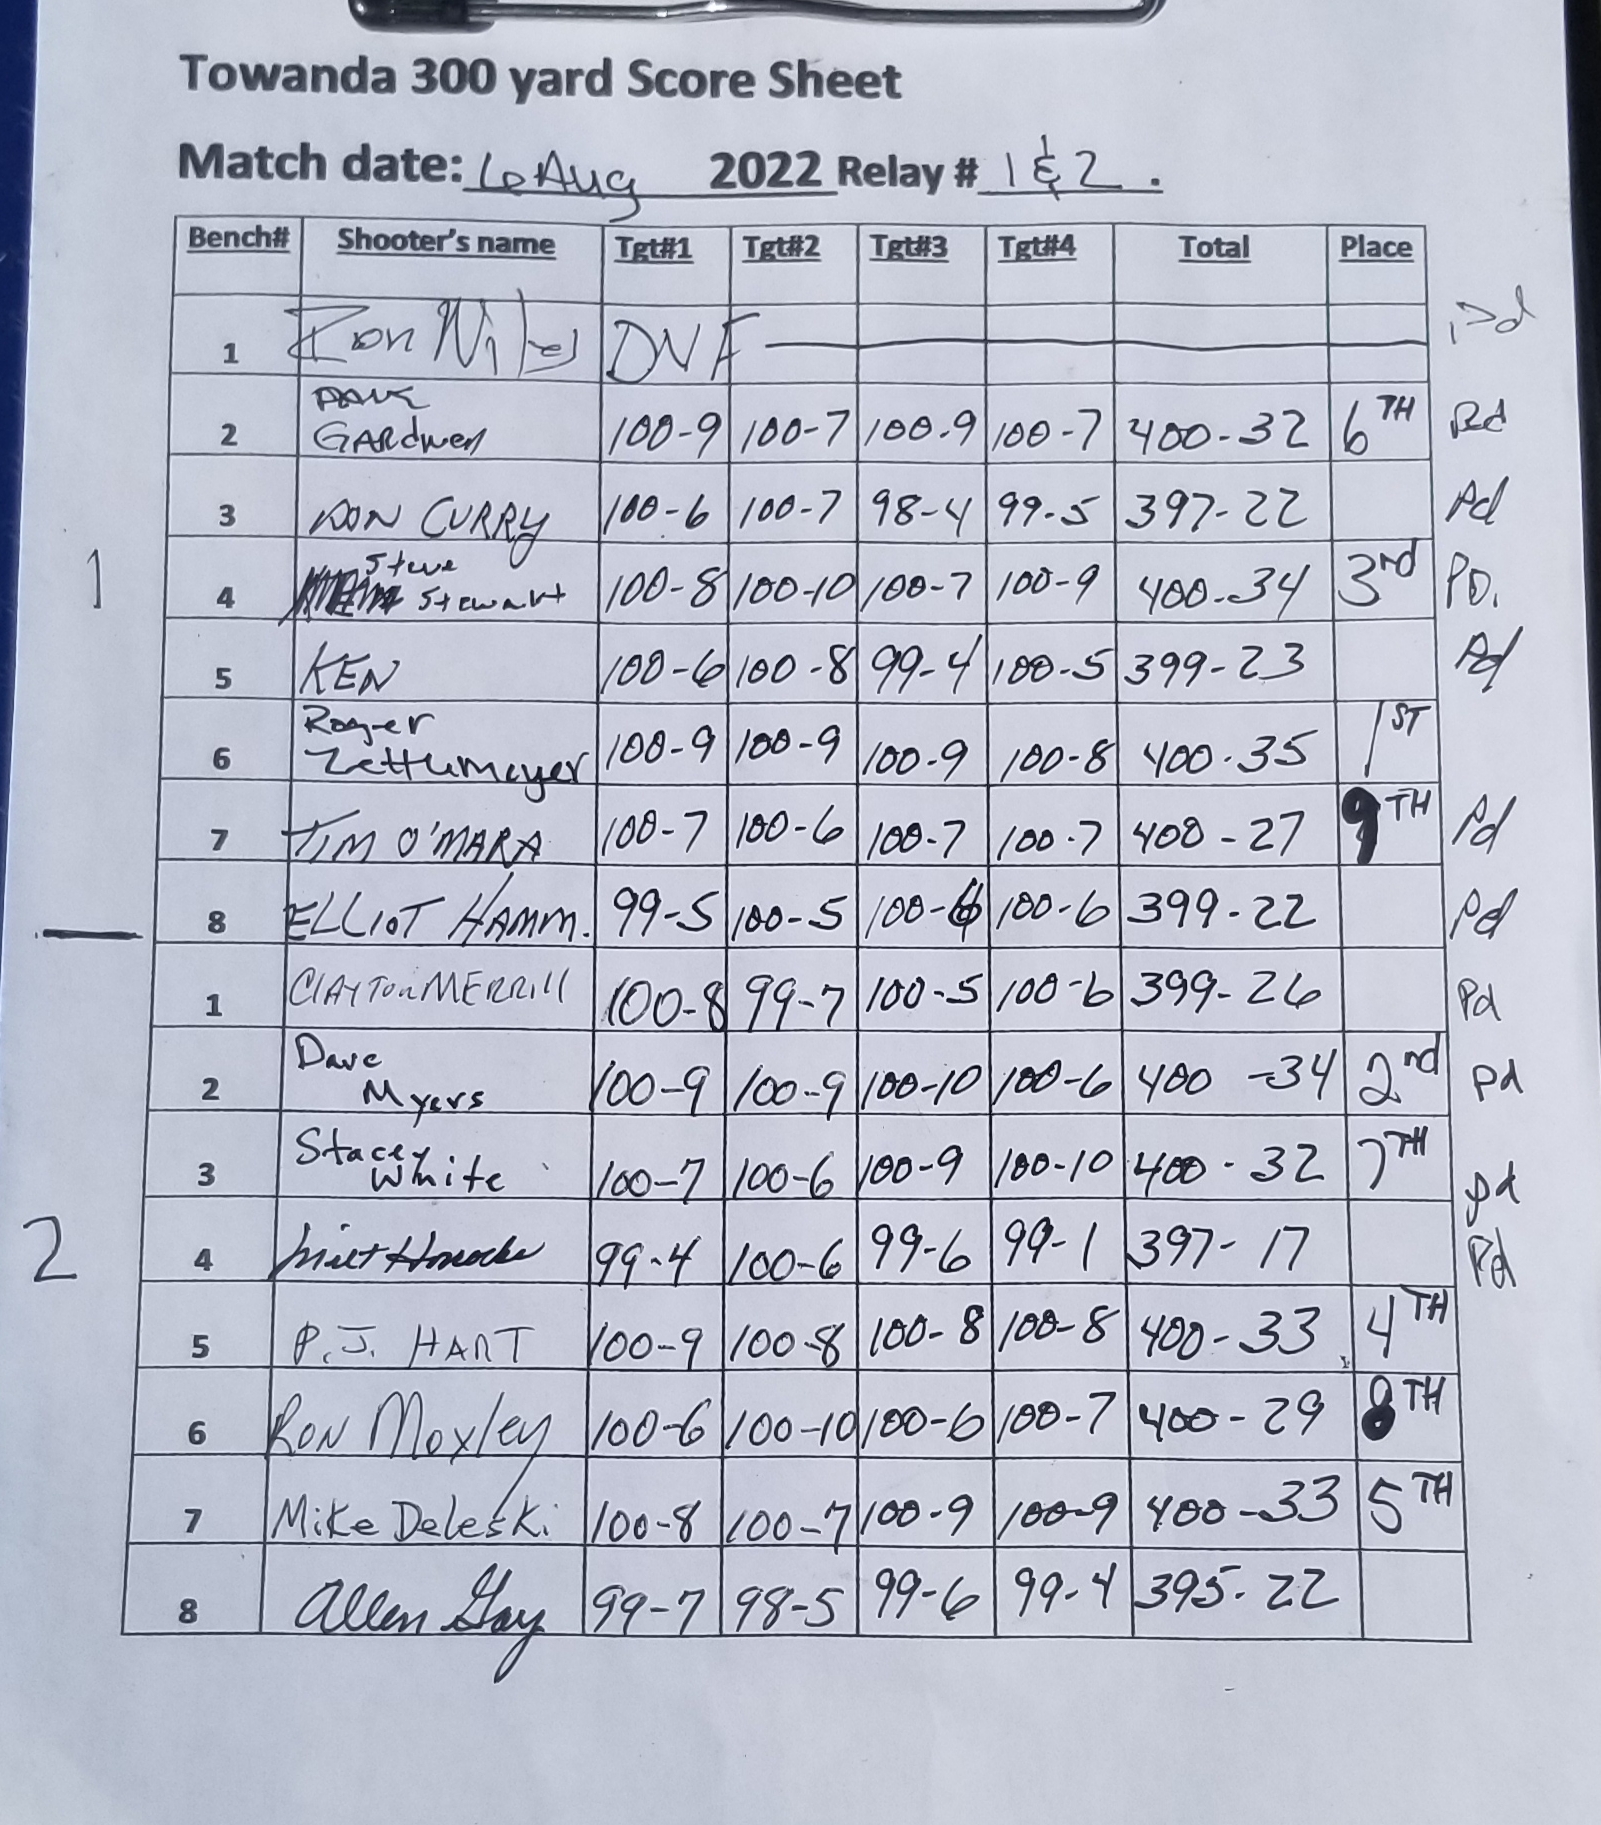 Towanda 300 yard Score Sheet
Match date: 6 Aug 2022 Relay # 1 & 2 .
Bench# Shooter's name Tgt#1 Tgt#2 Tgt#3 Tgt#4 Total Place
1 Ron DNF Pd
2 Dave Gardner 100-9 100-7 100-9 100-7 400-32 6TH Pd
3 RON CURRY 100-6 100-7 98-4 99-5 397-22 Pd
1
4 Steve Stewart 100-8 100-10 100-7 100-9 400-34 3rd PD.
5 KEN 100-6 100-8 99-4 100-5 399-23 Pd
6 Roger Zettlemoyer 100-9 100-9 100-9 100-8 400-35 1ST
7 TIM O'MARA 100-7 100-6 100-7 100-7 400-27 9TH Pd
8 ELLIOT HAMM. 99-5 100-5 100-6 100-6 399-22 Pd
1 CLAYTON MERRILL 100-8 99-7 100-5 100-6 399-26 Pd
2 Dave Myers 100-9 100-9 100-10 100-6 400-34 2nd pd
3 Stacey White 100-7 100-6 100-9 100-10 400-32 7TH pd
2
4 99-4 100-6 99-6 99-1 397-17 Pd
5 P.J. HART 100-9 100-8 100-8 100-8 400-33 4TH
6 Ron Moxley 100-6 100-10 100-6 100-7 400-29 8TH
7 Mike Deleski 100-8 100-7 100-9 100-9 400-33 5TH
8 Allen Gay 99-7 98-5 99-6 99-4 395-22